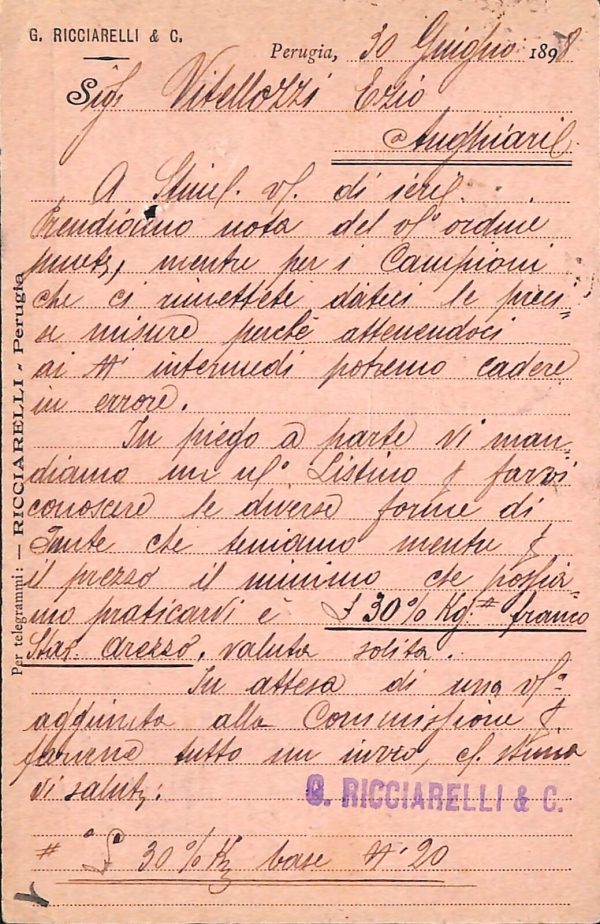 G. RICCIARELLI & C.
Perugia, 30 Giugno 1898
Sigr. Vitellozzi Ezio
Anghiari
A Stim. vs. di ieri.
Prendiamo nota del vs. ordine
puntz, mentre per i Campioni
che ci rimettete dateci le preci=
se misure perchè attenendoci
ai Ni intermedi potremo cadere
in errore.
In piego a parte vi man=
diamo un ns. Listino p farvi
conoscere le diverse forme di
Punte che teniamo mentre p
il prezzo il minimo che possia=
mo praticarvi è £ 30 % Kg.# franco
Staz. Arezzo, valuta solita.
In attesa di una vs.
aggiunta alla Commissione p
farvene tutto un invio, c. stima
vi salutz:
G. RICCIARELLI & C.
# £ 30 % Kg base N° 20
Per telegrammi: — RICCIARELLI - Perugia